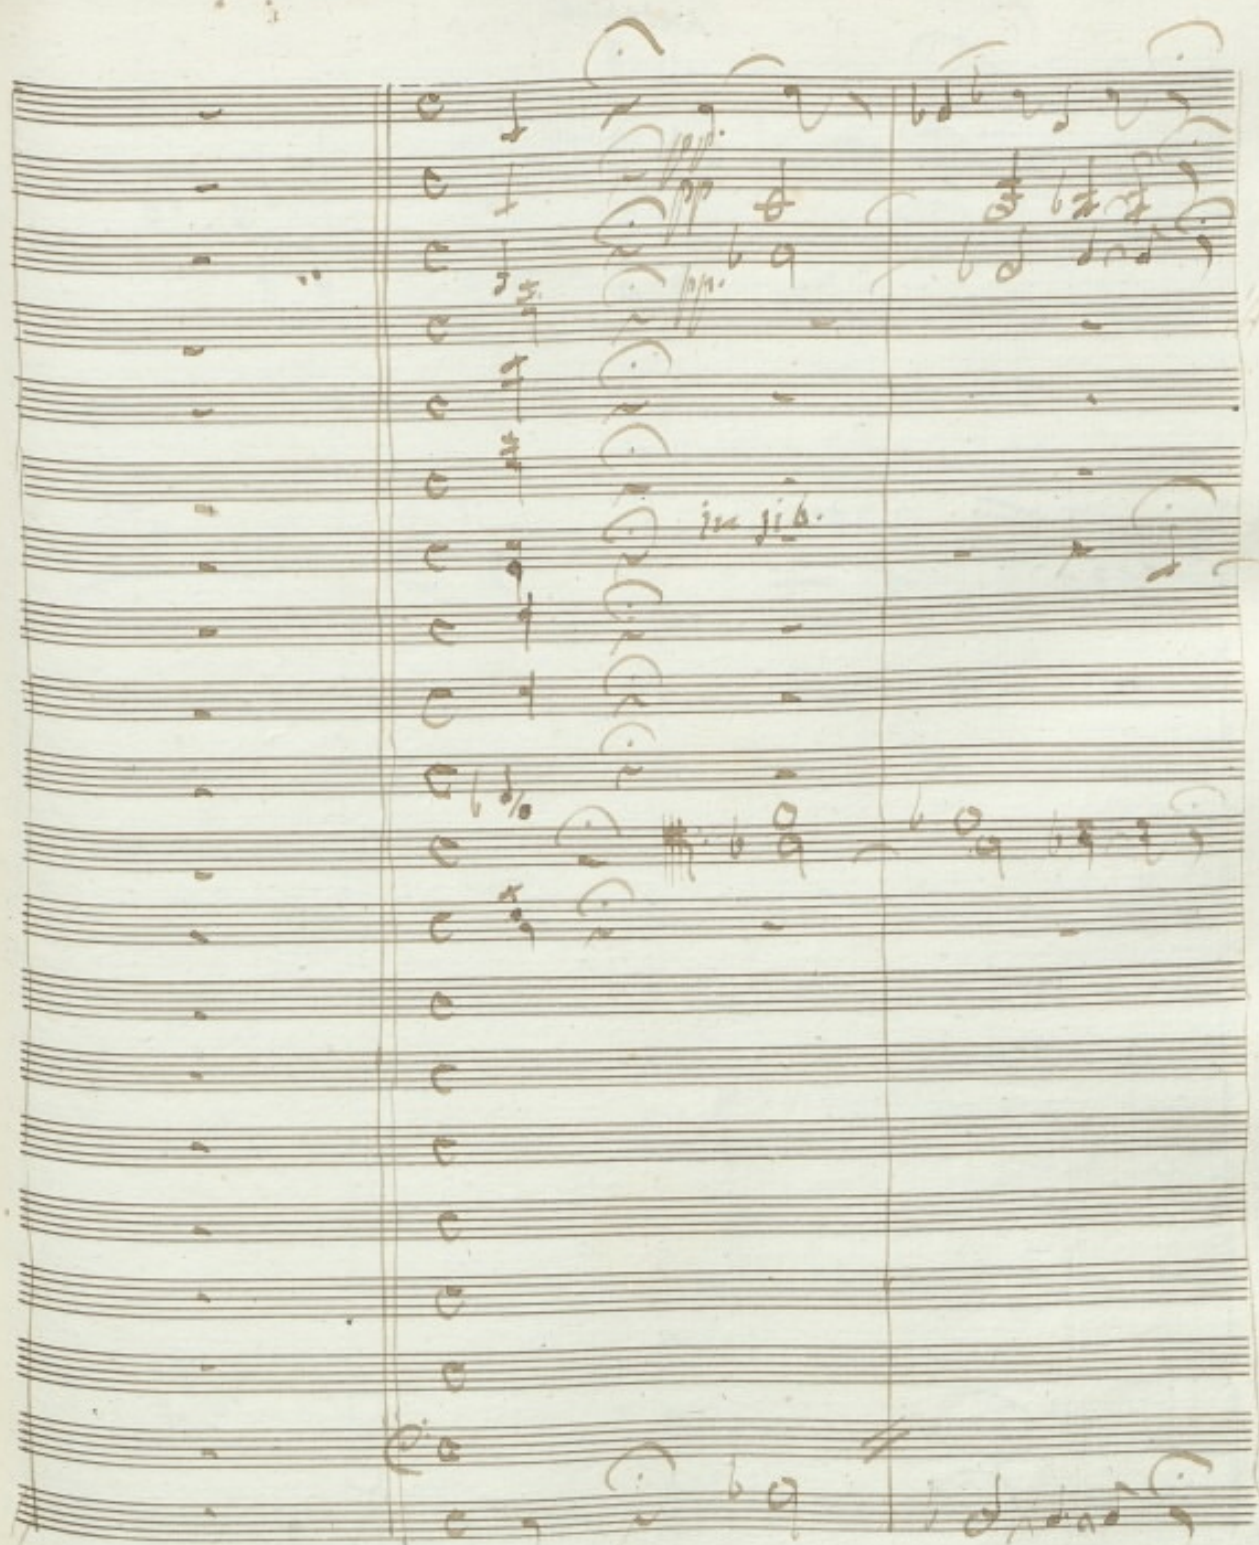 ppp.
pp
pp.
in sib.